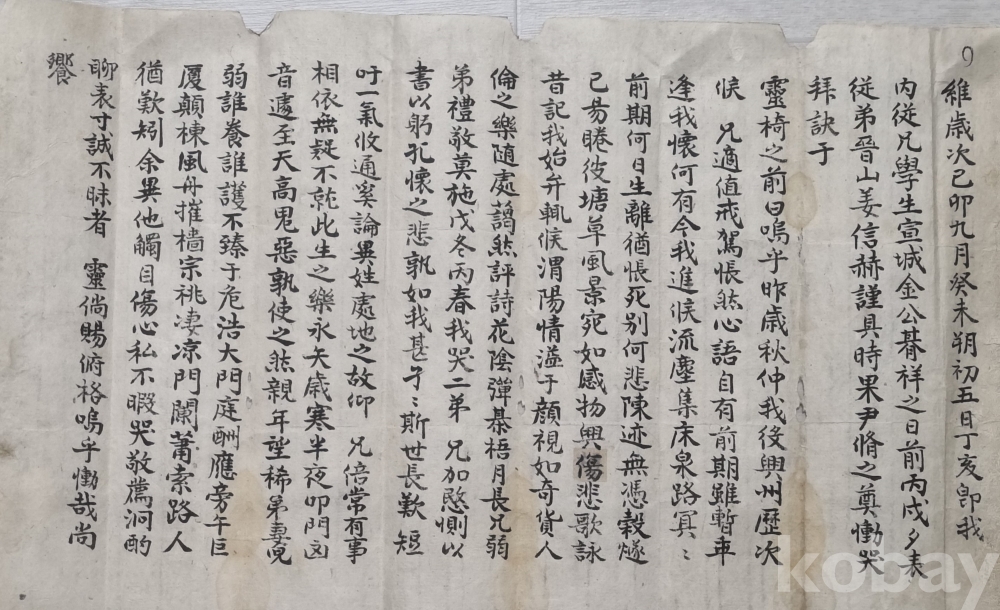 維歲次己卯九月癸未朔初五日丁亥卽我
內從兄學生宣城金公朞祥之日前丙戌夕表
從弟晉山姜信赫謹具時果尹脩之奠慟哭
拜訣于
靈椅之前曰嗚乎昨歲秋仲我後興州歷次
候 兄適値戒駕悵然心語自有前期雖暫乖
逢我懷何有今我進候流塵集床泉路冥〻
前期何日生離猶悵死別何悲陳迹無憑穀燧
已易睠彼塘草風景宛如感物興傷悲歌詠
昔記我始弁輒候渭陽情溢于顏視如奇貨人
倫之樂隨處藹然評詩花陰彈棊梧月長兄弱
弟禮敬莫施戊冬丙春我哭二弟 兄加慜惻以
書以躬孔懷之悲孰如我甚孑〻斯世長歎短
吁一氣收通奚論異姓處地之故仰 兄倍常有事
相依無疑不就此生之樂永矢歲寒半夜叩門凶
音遽至天高鬼惡孰使之然親年望稀弟妻
弱誰養誰護不臻于危浩大門庭酬應旁午巨
厦顛棟風舟摧檣宗祧凄凉門闌蕭索路人
猶歎矧余異他觸目傷心私不暇哭敬薦泂酌
聊表寸誠不昧者 靈倘賜俯格嗚乎慟哉尙
饗
kobay